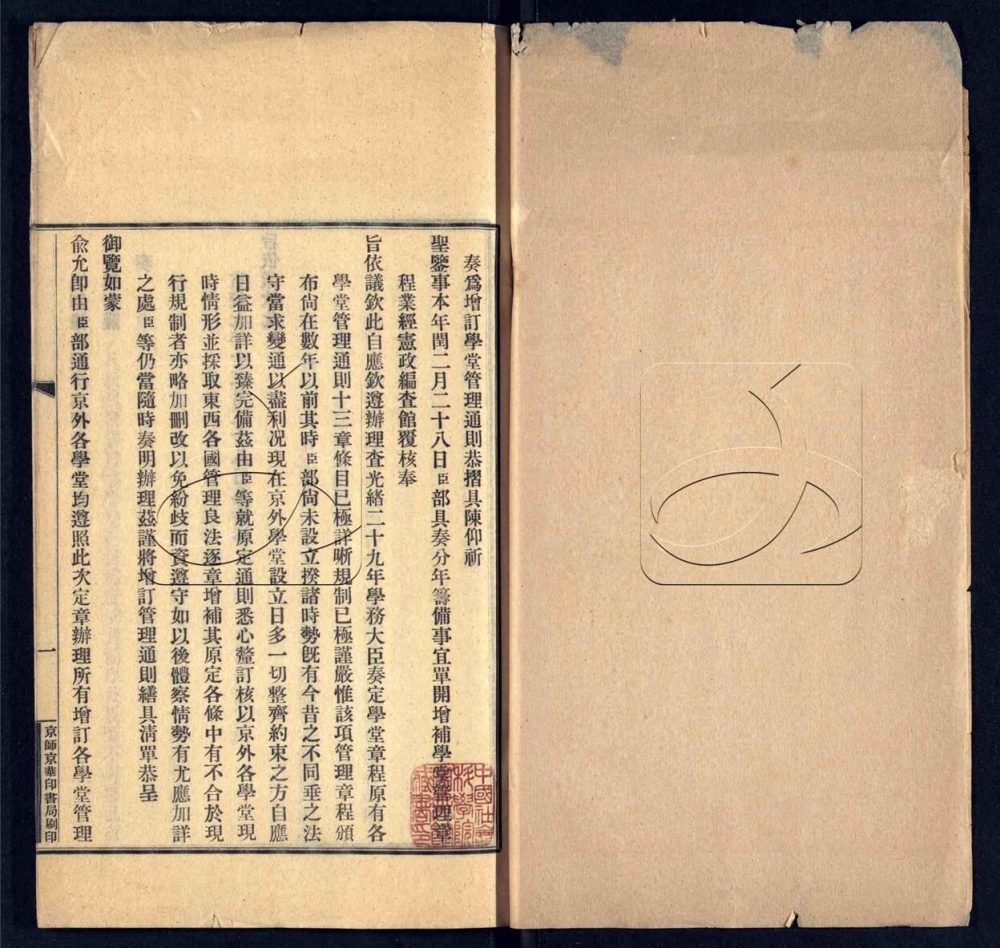 奏爲增訂學堂管理通則恭摺具陳仰祈
聖鑒事本年閏二月二十八日臣部具奏分年籌備事宜單開增補學堂管理章
程業經憲政編查館覆核奉
旨依議欽此自應欽遵辦理查光緒二十九年學務大臣奏定學堂章程原有各
學堂管理通則十三章條目已極詳晰規制已極謹嚴惟該項管理章程頒
布尚在數年以前其時臣部尚未設立揆諸時勢旣有今昔之不同垂之法
守當求變通以盡利况現在京外學堂設立日多一切整齊約束之方自應
日益加詳以臻完備茲由臣等就原定通則悉心釐訂核以京外各學堂現
時情形並採取東西各國管理良法逐章增補其原定各條中有不合於現
行規制者亦略加刪改以免紛歧而資遵守如以後體察情勢有尤應加詳
之處臣等仍當隨時奏明辦理茲謹將增訂管理通則繕具清單恭呈
御覽如蒙
兪允卽由臣部通行京外各學堂均遵照此次定章辦理所有增訂各學堂管理
一
京師京華印書局刷印